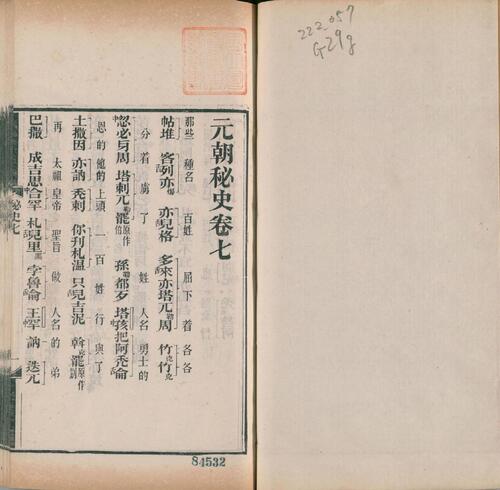 元朝秘史卷七
那些 種名 百姓 屈下着 各各
帖堆 客列亦 亦兒格 多來亦塔兀周 竹竹
分着 虜了 姓 人名 勇士的
忽必牙周 塔剌兀 孫都歹 塔孩把阿禿侖
恩的 他的 上頭 一百 姓 行 與了
土撒因 亦訥 禿剌 你刋札溫 只兒吉泥
再 太祖皇帝 聖旨 做 人名的 弟
巴撒 成吉思合罕 札兒里 孛魯侖 王罕訥 迭兀
秘史七
84532
222.057
G29g